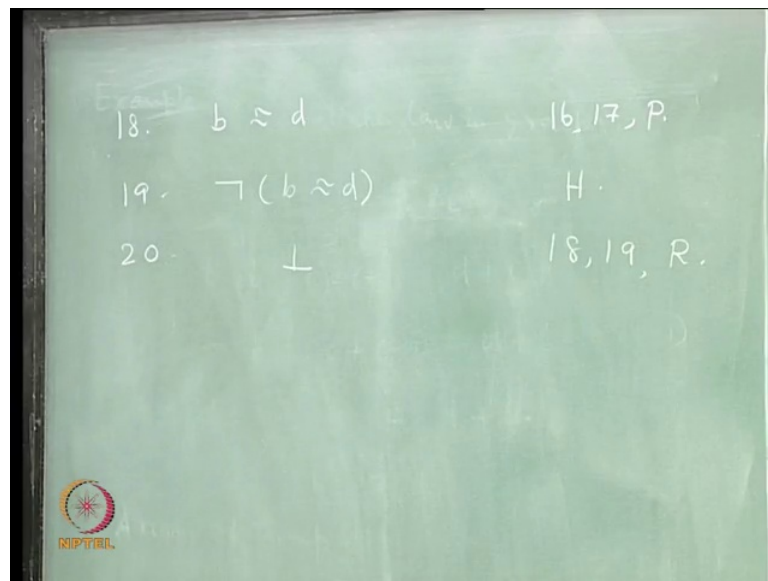 18. b ≈ d 16, 17, P.
19. ¬ (b ≈ d) H.
20. ⊥ 18, 19, R.
NPTEL